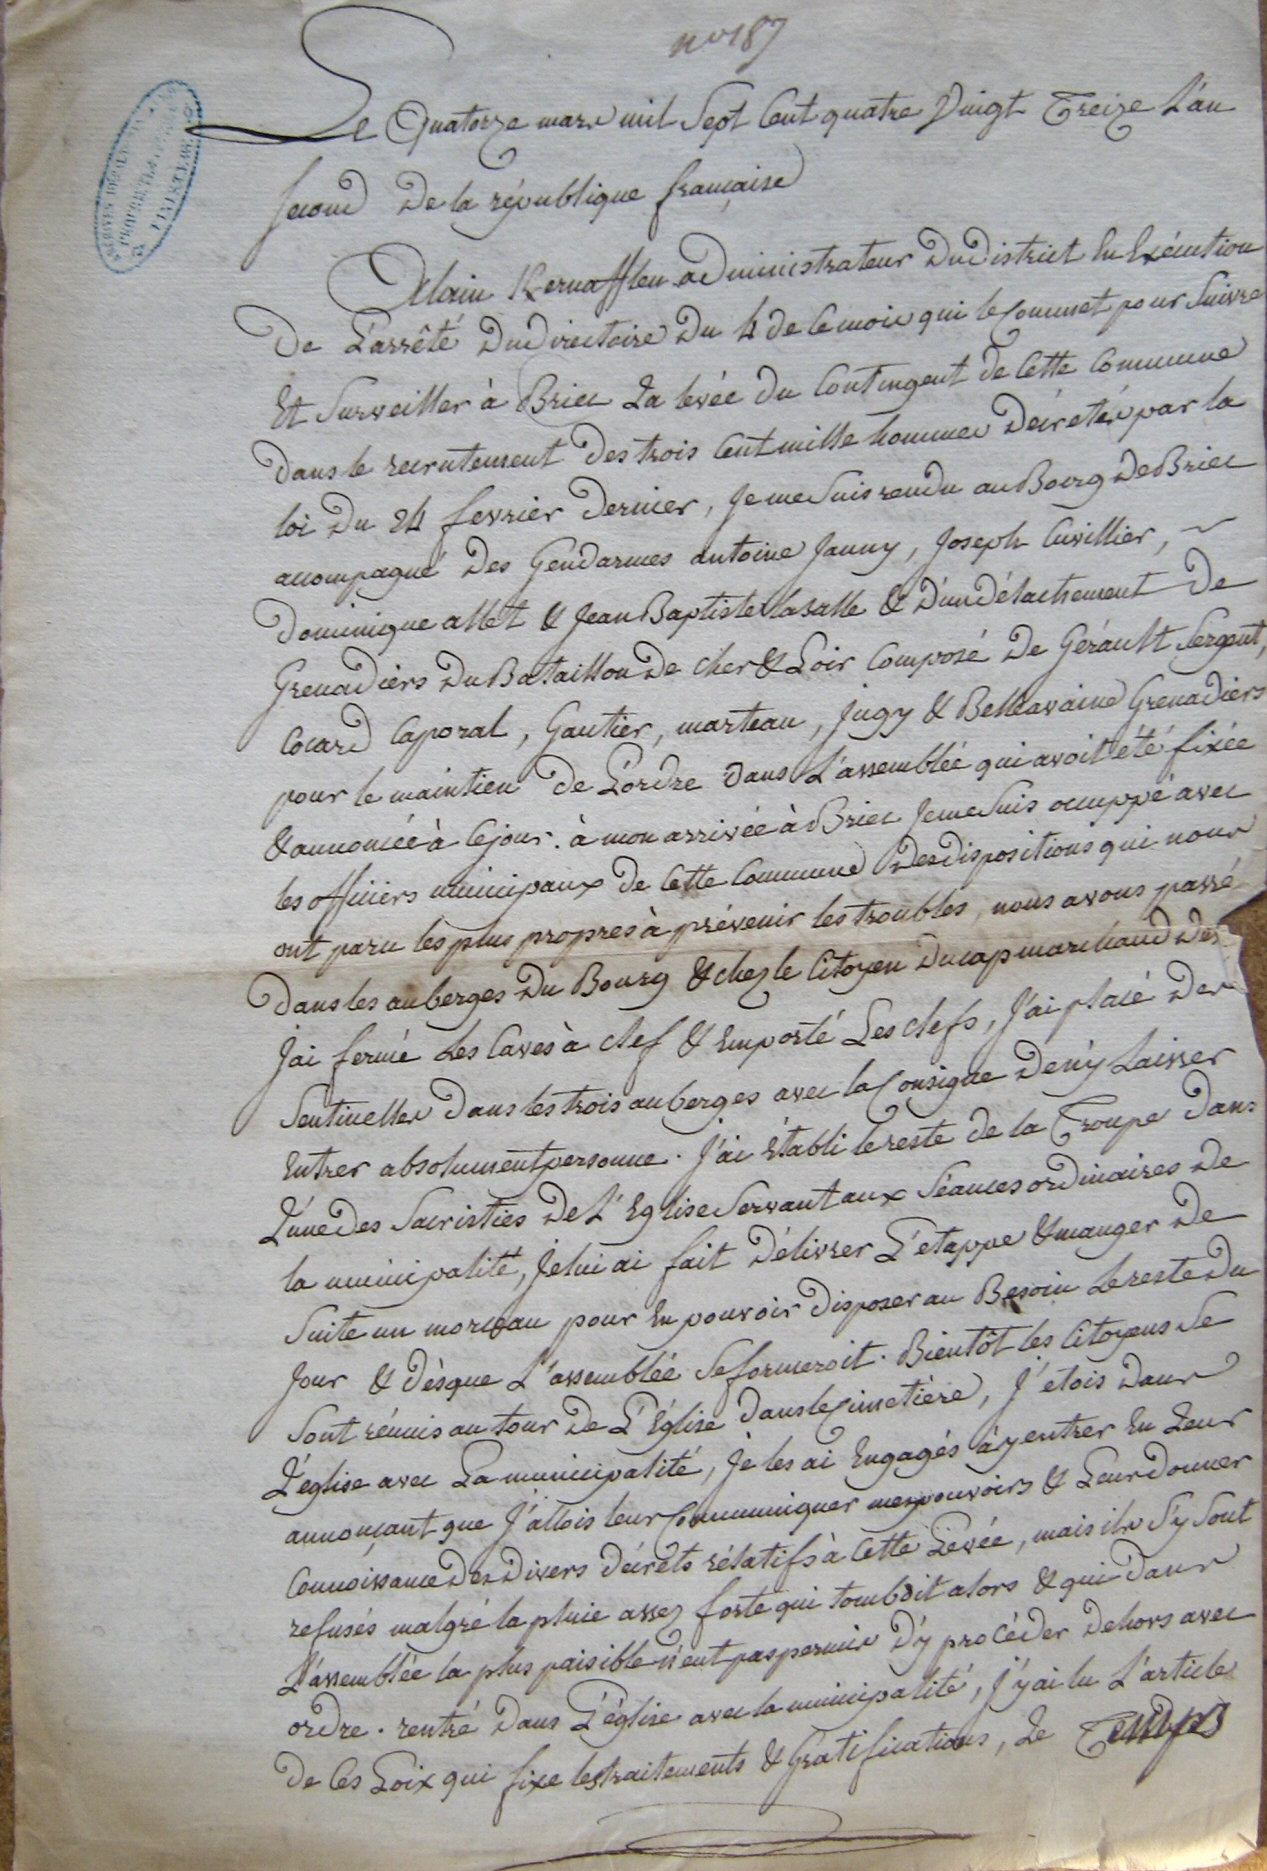 n° 187
ARCHIVES DÉPARTEMENTALES
PROPRIÉTÉ PUBLIQUE
FINISTÈRE
Le Quatorze mars mil Sept Cent quatre Vingt Treize L'an
second De la république française
Alain Kernafflen administrateur Du District En Exécution
De L'arrêté Du Directoire Du 4 de Ce mois qui le Commet pour Suivre
Et Surveiller à Briec La levée du Contingent de Cette Commune
Dans le recrutement Des trois Cent mille hommes Décretés par la
loi Du 24 fevrier Dernier, Je me Suis rendu au Bourg De Briec
accompagné Des Gendarmes antoine Jauny, Joseph Cuvillier,
Dominique allet & Jean Baptiste Lasalle & D'un Détachement De
Grenadiers Du Bataillon De Cher & Loir Composé De Gérault Sergent,
Cocard Caporal, Gautier, marteau, Jugy & Belleavaine Grenadiers
pour le maintien De L'ordre Dans L'assemblée qui avoit été fixée
& annoncée à Ce jour. à mon arrivée à Briec Je me Suis occuppé avec
les officiers municipaux de Cette Commune Des dispositions qui nous
ont paru les plus propres à prévenir les troubles, nous avons passé
Dans les auberges Du Bourg & chez le Citoyen Ducap marchand De
J'ai fermé Les Caves à clef & Emporté Les clefs, J'ai placé Des
Sentinelles Dans les trois auberges avec la Consigne De n'y Laisser
Entrer absolument personne. J'ai Établi le reste de la Troupe Dans
L'une Des Sacristies De L'Eglise Servant aux Séances ordinaires De
la municipalité, Je lui ai fait Délivrer L'etappe & manger De
Suite un morceau pour En pouvoir Disposer au Besoin Le reste Du
Jour & Dès que L'assemblée Se formeroit. Bientôt les Citoyens Se
Sont réunis au tour De L'Église Dans le Cimetière, J'etois Dans
L'église avec La municipalité, Je les ai Engagés à y entrer En Leur
annonçant que J'allois leur Communiquer mes pouvoirs & Leur Donner
Connoissance Des Divers Décrets rélatifs à Cette Levée, mais ils S'y Sont
refusés malgré la pluie assez forte qui tomboit alors & qui Dans
L'assemblée la plus paisible n'eut pas permis D'y procéder Dehors avec
ordre. rentré Dans L'église avec la municipalité, J'y ai lu L'article
De Ces Loix qui fixe les traitements & Gratifications, Le Temps